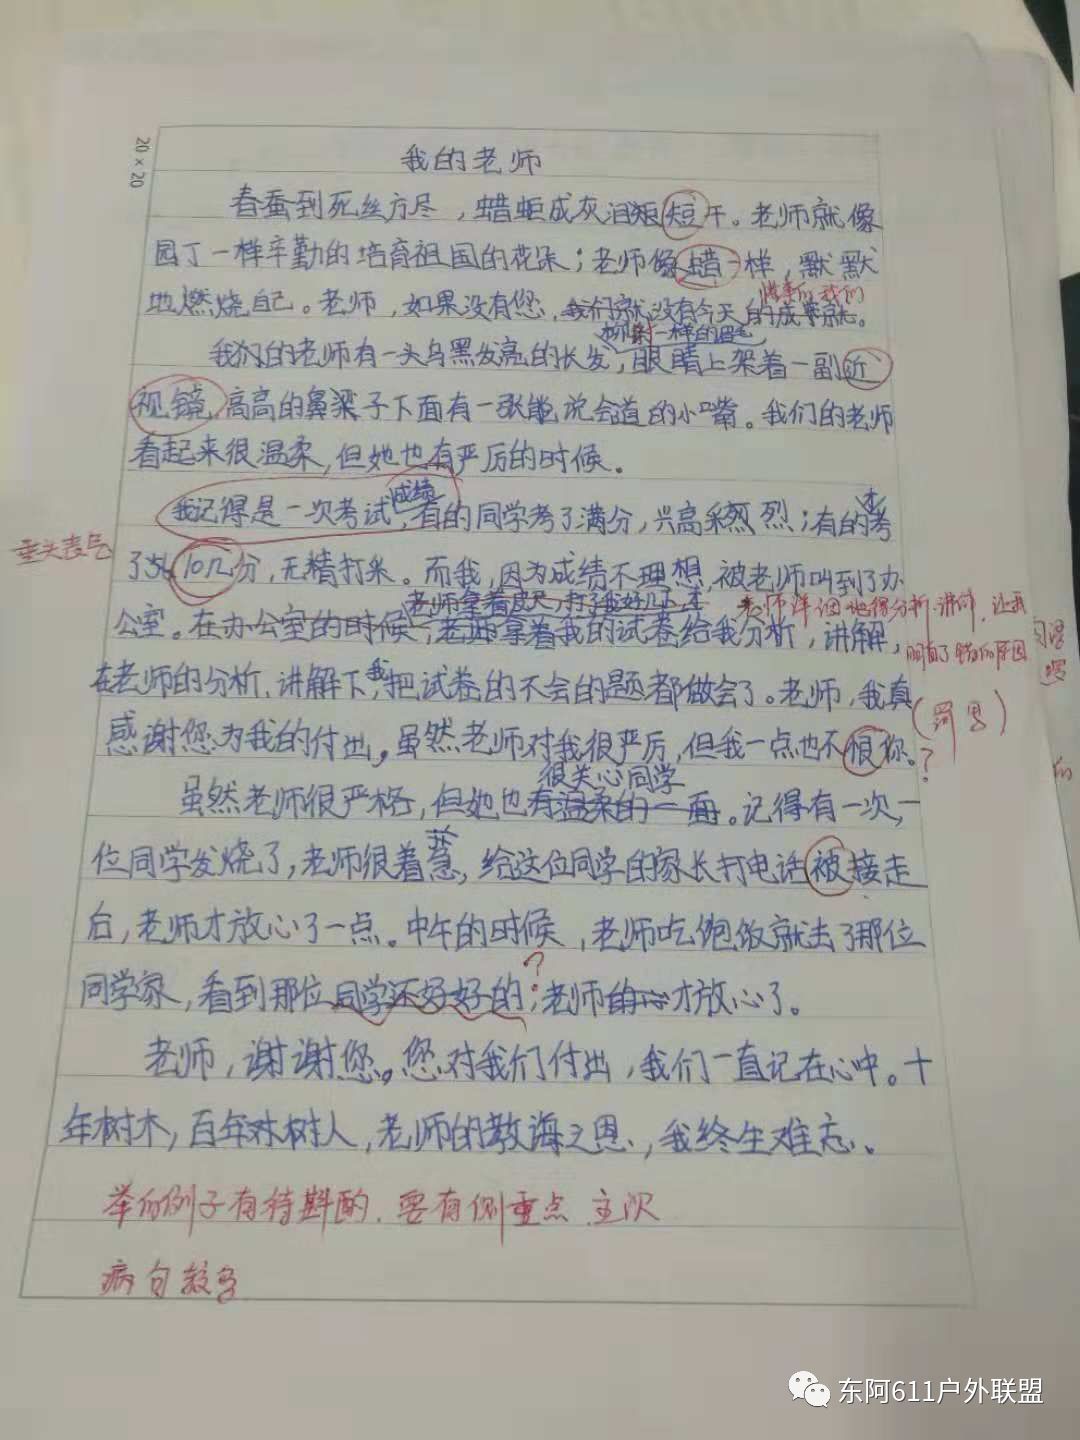 20×20
我的老师
春蚕到死丝方尽，蜡蛆成灰泪短干。老师就像
园丁一样辛勤的培育祖国的花朵；老师像蜡一样，默默
地燃烧自己。老师，如果没有您，我们就没有今天的成就。
我们
一样的眉毛
我们的老师有一头乌黑发亮的长发，眼睛上架着一副近
视镜，高高的鼻梁子下面有一张能说会道的小嘴。我们的老师
看起来很温柔，但她也有严厉的时候。
成绩
我记得是一次考试，有的同学考了满分，兴高采烈；有的考
垂头丧气
了 10几分，无精打采。而我，因为成绩不理想，被老师叫到了办
老师拿着皮尺，打了我好几下，才
老师详细地得分析、讲解，让我
公室。在办公室的时候，老师拿着我的试卷给我分析，讲解，
明白了错的原因
在老师的分析、讲解下，我把试卷的不会的题都做会了。老师，我真
感谢您为我的付出。虽然老师对我很严厉，但我一点也不恨你。
？
很关心同学
虽然老师很严格，但她也有温柔的一面。记得有一次，一
位同学发烧了，老师很着急，给这位同学的家长打电话被接走
后，老师才放心了一点。中午的时候，老师吃饱饭就去了那位
？
同学家，看到那位同学还好好的，老师才放心了。
老师，谢谢您。您对我们付出，我们一直记在心中。十
年树木，百年树人，老师的教诲之恩，我终生难忘。
举的例子有待斟酌、要有侧重点、主次
病句较多
东阿611户外联盟